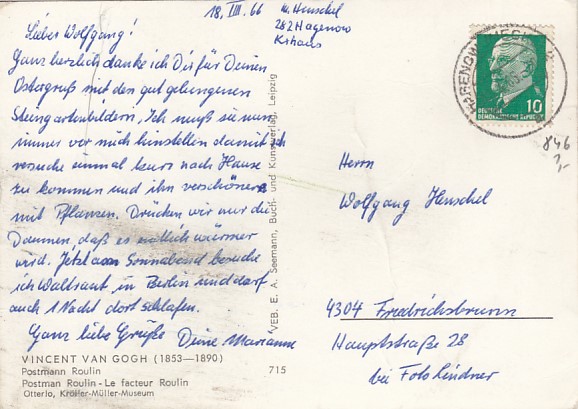 18. III. 66
M. Henschel
282 Hagenow
Krhaus
Lieber Wolfgang!
Ganz herzlich danke ich Dir für Deinen
Ostergruß mit den gut gelungenen
Steingartenbildern. Ich muß sie nun
immer vor mich hinstellen damit ich
versuche einmal kurz nach Hause
zu kommen und ihn verschönere
mit Pflanzen. Drücken wir nur die
Daumen, daß es endlich wärmer
wird. Jetzt am Sonnabend besuche
ich Waltraut in Berlin und darf
auch 1 Nacht dort schlafen.
Ganz liebe Grüße Deine Marianne
VINCENT VAN GOGH (1853—1890)
Postmann Roulin
Postman Roulin - Le facteur Roulin
Otterlo, Kröller-Müller-Museum
715
VEB. E. A. Seemann, Buch- und Kunstverlag, Leipzig
HAGENOW
10
DEUTSCHE
DEMOKRATISCHE REPUBLIK
846
Herrn
Wolfgang Henschel
4304 Friedrichsbrunn
Hauptstraße 28
bei Foto Lindner